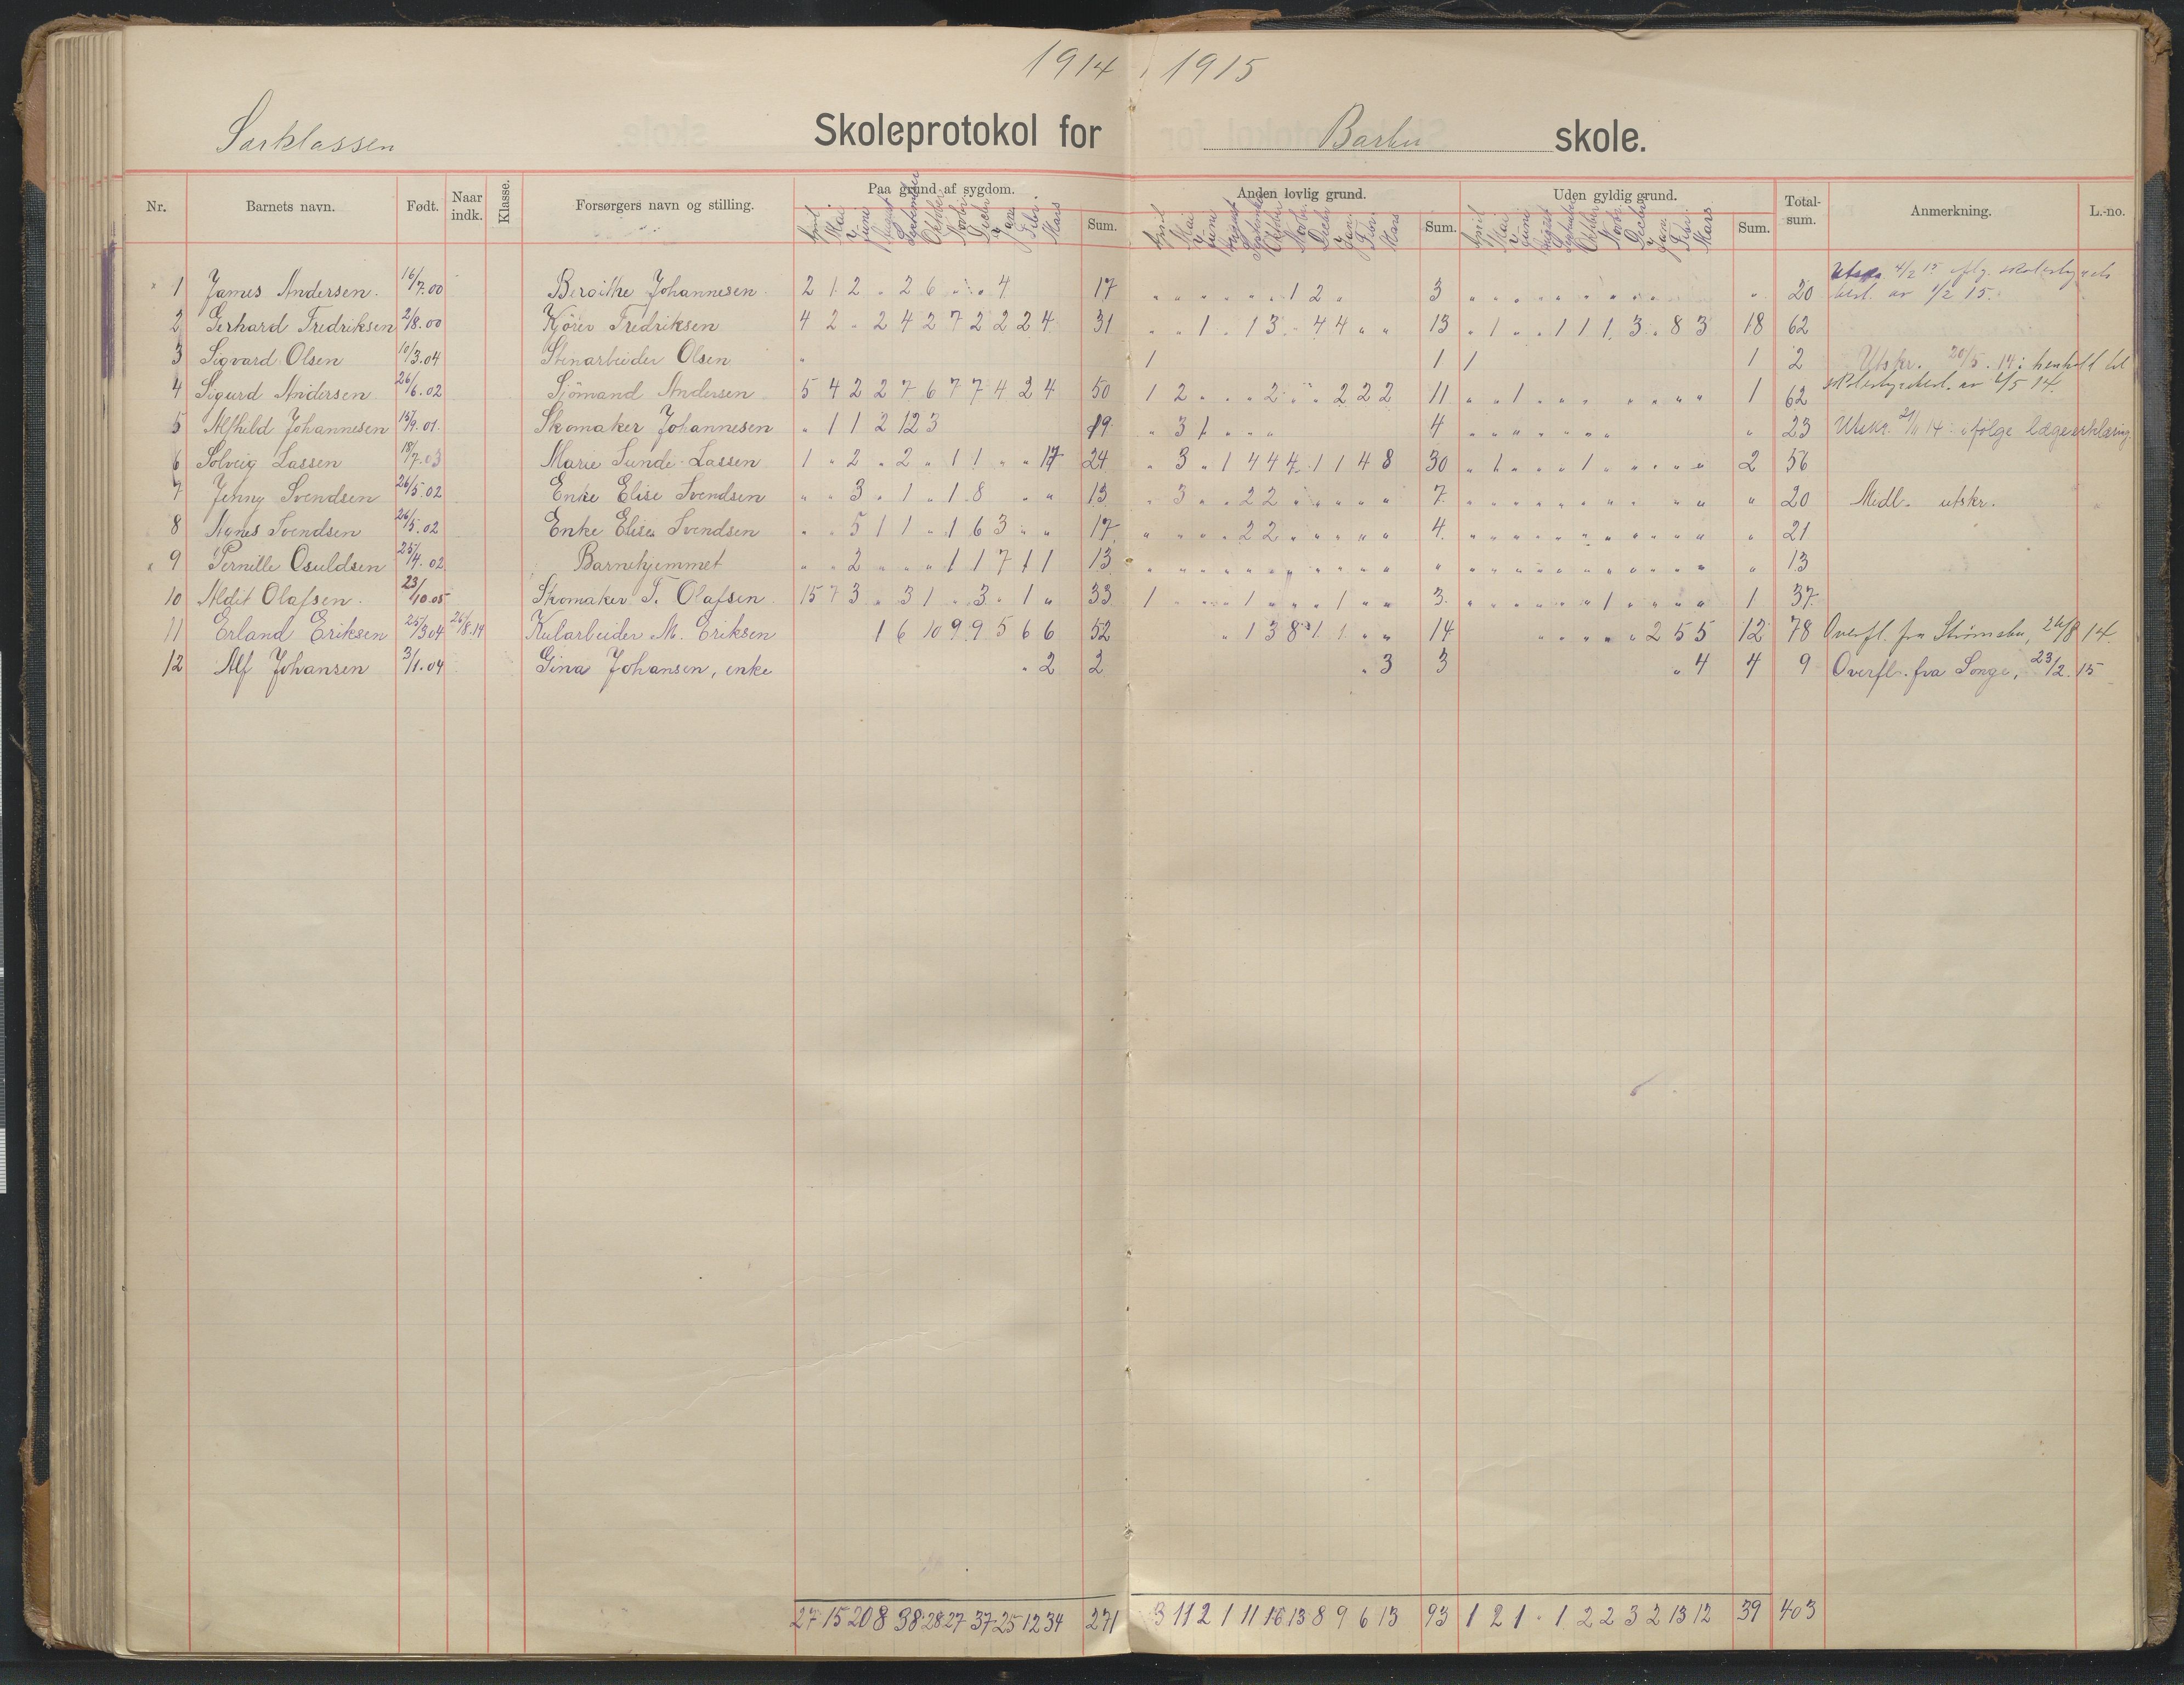 1914 1915
Særklassen Skoleprotokol for Barbu skole.
Nr. Barnets navn. Født. Naar indk. Klasse. Forsørgers navn og stilling. Paa grund af sygdom. Sum. Anden lovlig grund. Sum. Uden gyldig grund. Sum. Total-sum. Anmerkning. L.-no.
April Mai Juni August September Oktbr Novbr Decbr Jan. Febr. Mars April Mai Juni August September Oktbr Novbr. Decbr Jan. Febr Mars April Mai Juni August Septmbr Oktbr Novbr Decbr Jan. Febr. Mars
1 James Andersen. 16/7.00 Bergithe Johannesen. 2 1 2 " 2 6 " " 4 17 " " " " " " 1 2 " 3 " " " " " " " " " " 20 Utskr. 4/2 15 iflg. skolestyrets
besl. av 1/2 15.
2 Gerhard Fredriksen 2/8.00 Kjører Fredriksen 4 2 " 2 4 2 7 2 2 2 4 31 " " 1 " 1 3 " 4 4 " " 13 " 1 " " 1 1 1 3 " 8 3 18 62
3 Sigvard Olsen 10/3.04 Stenarbeider Olsen " 1 1 1 1 2 Utskr. 20/5. 14 i henhold til
4 Sigurd Andersen 26/6.02 Sjømand Andersen 5 4 2 2 7 6 7 7 4 2 4 50 1 2 " " " 2 " " 2 2 2 11 " " 1 " " " " " " " " 1 62 skolestyrebesl. av 4/5 14.
5 Alfhild Johannesen 15/9.01. Skomaker Johannesen " 1 1 2 12 3 19 " 3 1 " " " 4 " " " " " " " 23 Utskr. 21/11 14 ifølge lægeerklæring.
6 Solveig Lassen 18/7.03 Marie Sunde-Lassen 1 " 2 " 2 " 1 1 " " 17 24 " 3 " 1 4 4 4 1 1 4 8 30 " 1 " " " 1 " " " " " 2 56
7 Jenny Svendsen 26/5.02 Enke Elise Svendsen " " 3 " 1 " 1 8 " " 13 " 3 " " 2 2 " " " " " 7 " " " " " " " " " " " " 20 Midl. utskr.
8 Agnes Svendsen 26/5.02 Enke Elise Svendsen " " 5 1 1 " 1 6 3 " " 17 " " " " 2 2 " " " " " 4 " " " " " " " " " " " " 21
" 9 Pernille Osuldsen 25/4.02 Barnehjemmet " " 2 " " " 1 1 7 1 1 13 " " " " " " " " " " " " " " " " " " " " " " " " 13
10 Aldit Olafsen. 23/10.05 Skomaker T. Olafsen 15 7 3 " 3 1 " 3 " 1 " 33 1 " " " 1 " " " 1 " " 3 " " " " " " 1 " " " " 1 37
11 Erland Eriksen 25/3.04 26/8.14 Kularbeider M. Eriksen 1 6 10 9 9 5 6 6 52 " 1 3 8 1 1 " " 14 " " " " " 2 5 5 12 78 Overfl. fra Strømsbu, 26/8 14.
12 Alf Johansen 3/1.04 Gina Johansen, enke " 2 2 " 3 3 " 4 4 9 Overfl. fra Songe, 23/2.15
27 15 20 8 38 28 27 37 25 12 34 271 3 11 2 1 11 16 13 8 9 6 13 93 1 2 1 " 1 2 2 3 2 13 12 39 403